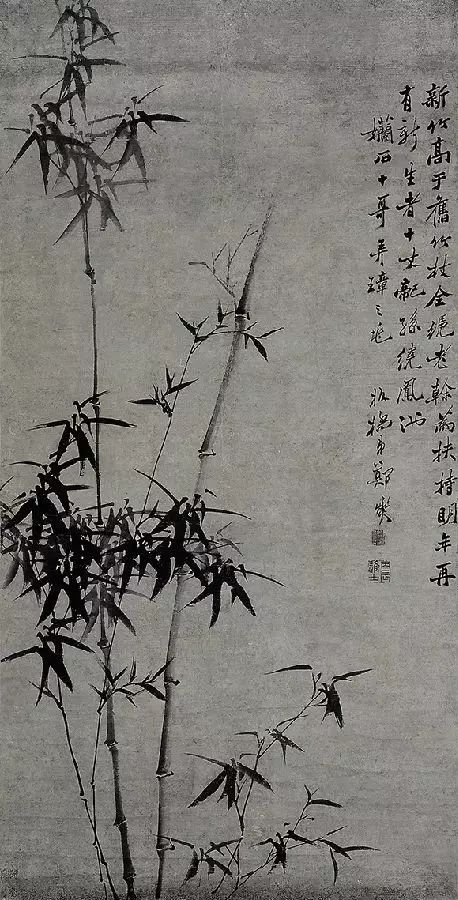 新竹高于舊竹枝全凭老幹為扶持明年再
有新生者十丈龍孫繞鳳池
孄石十哥弄璋之兆 板橋弟鄭燮